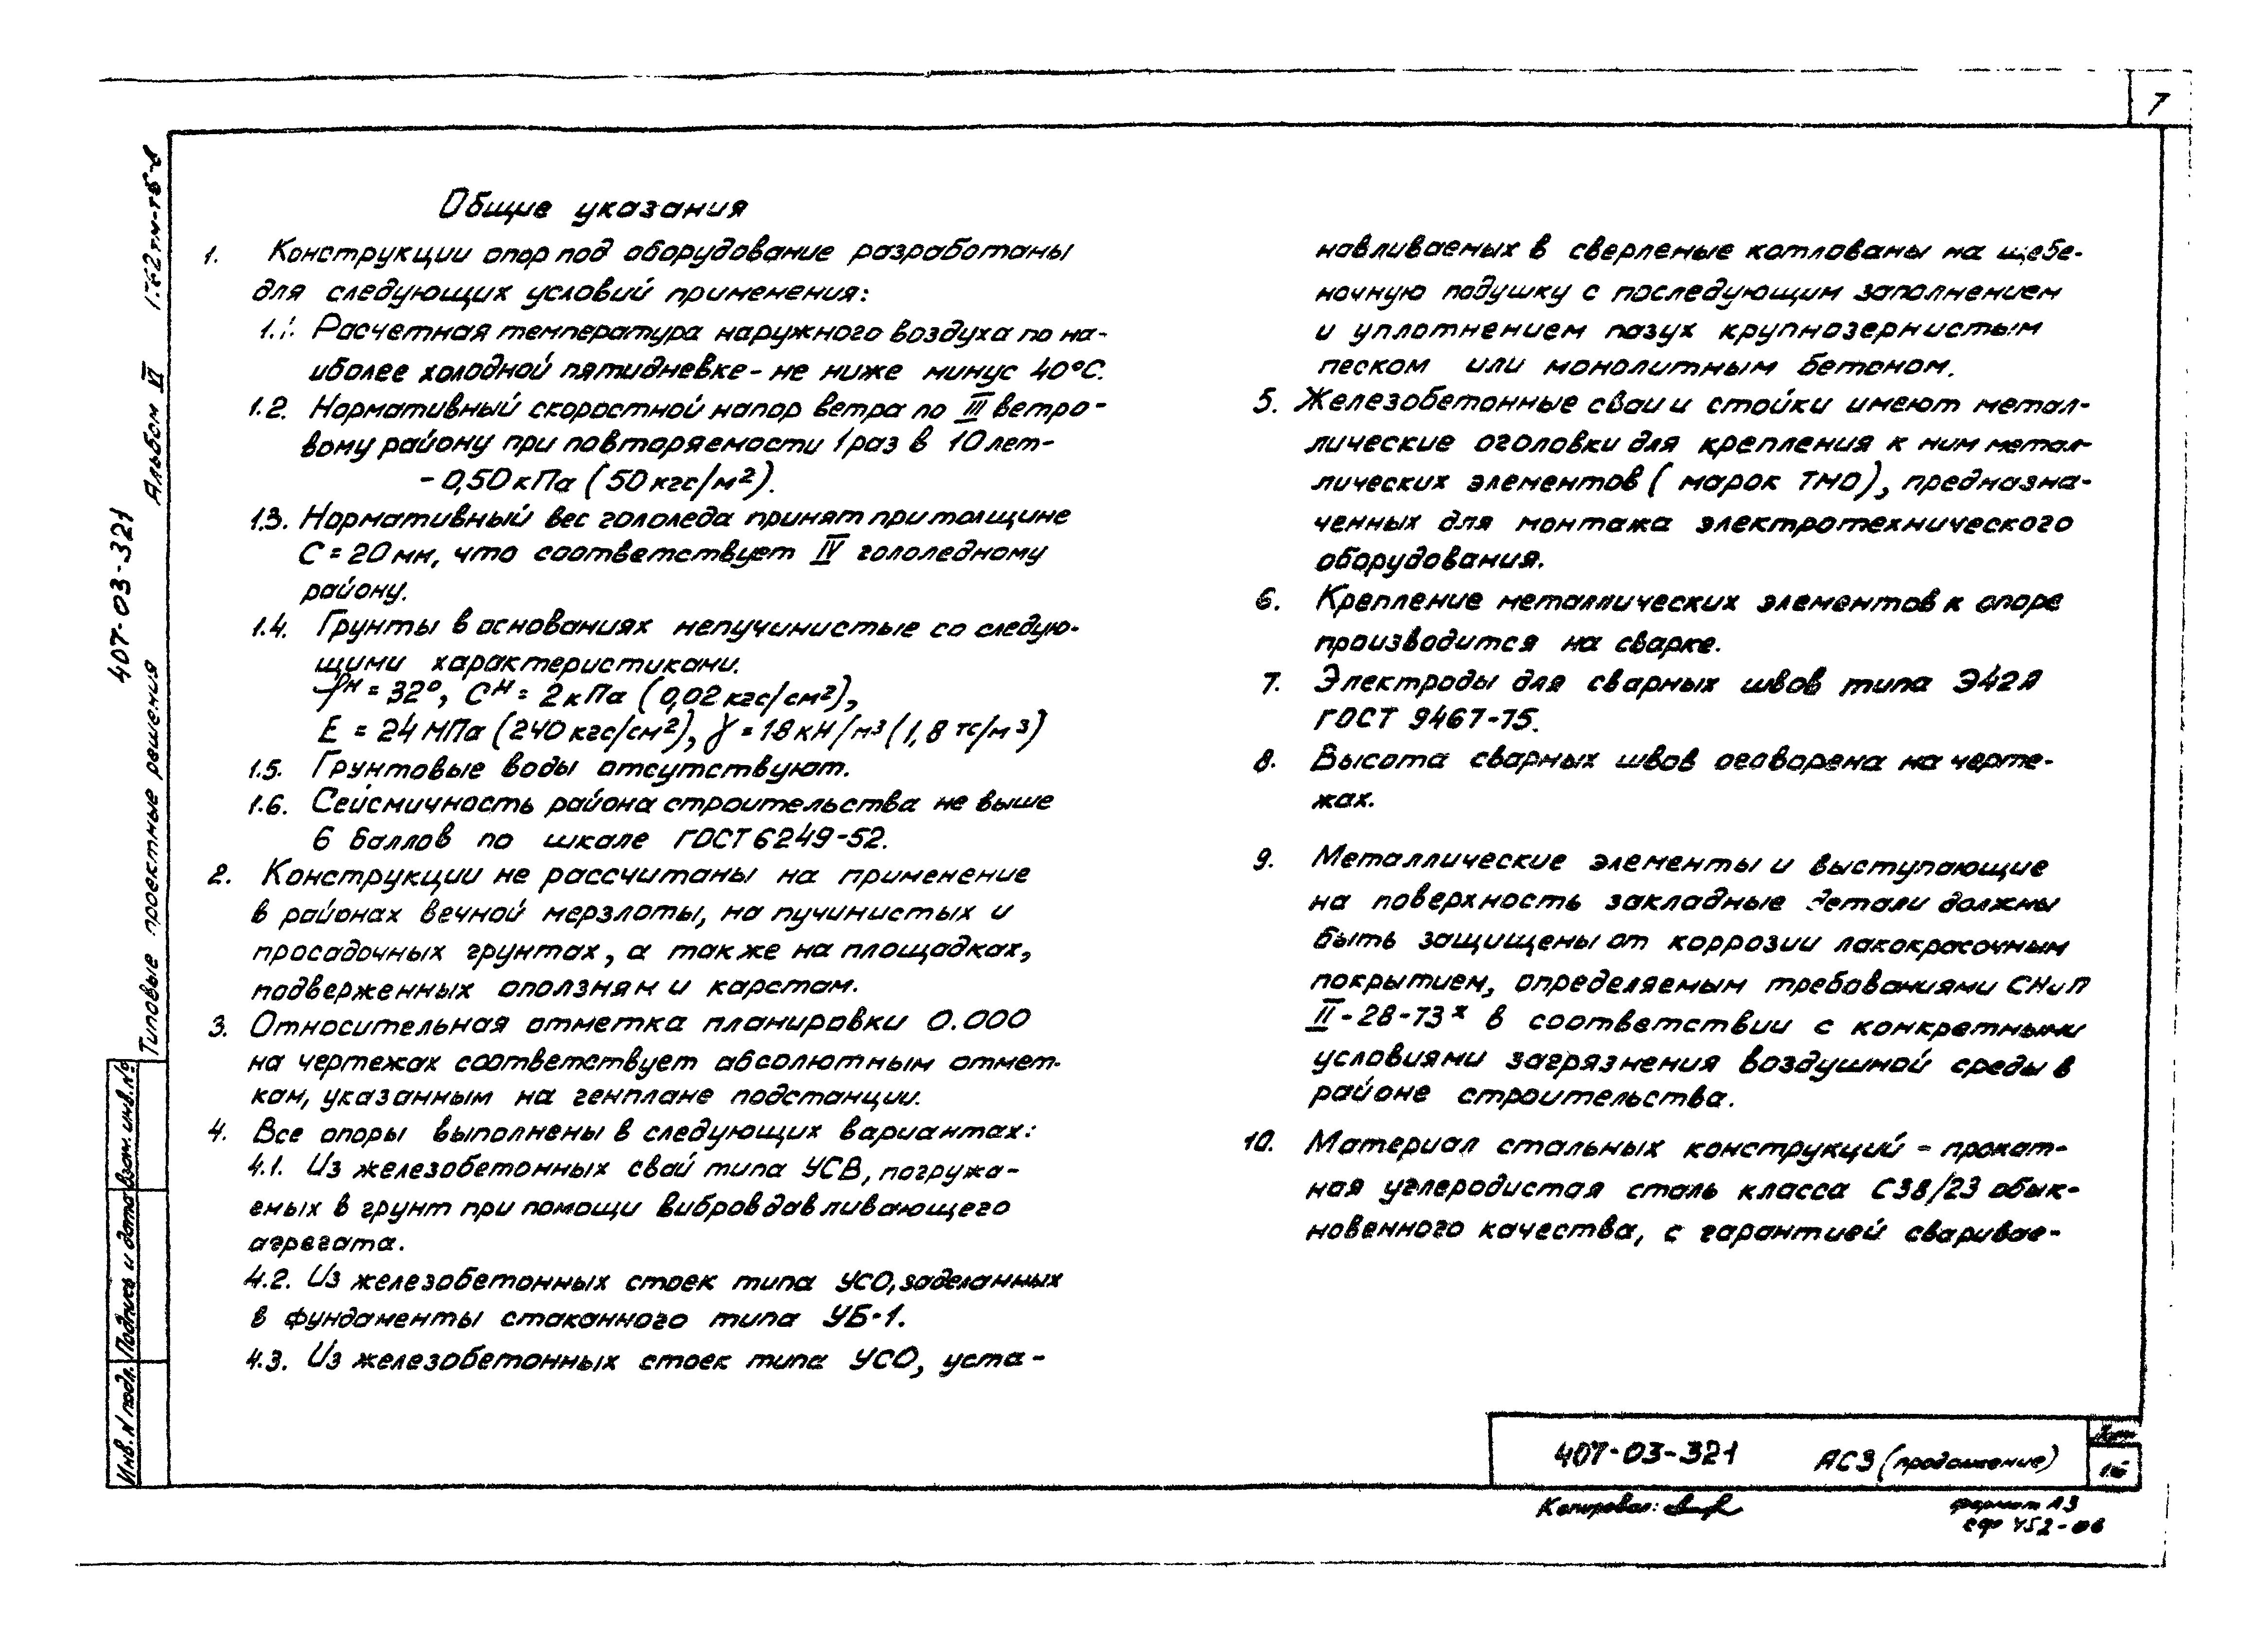 7
Общие указания
1. Конструкции опор под оборудование разработаны
для следующих условий применения:
1.1. Расчетная температура наружного воздуха по на-
иболее холодной пятидневке - не ниже минус 40°С.
1.2. Нормативный скоростной напор ветра по III ветро-
вому району при повторяемости 1 раз в 10 лет-
- 0,50 кПа (50 кгс/м²).
1.3. Нормативный вес гололеда принят при толщине
С = 20 мм, что соответствует IV гололедному
району.
1.4. Грунты в основаниях непучинистые со следую-
щими характеристиками.
φᴴ = 32°, Сᴴ = 2 кПа (0,02 кгс/см²),
Е = 24 МПа (240 кгс/см²), γ = 18 кН/м³ (1,8 тс/м³)
1.5. Грунтовые воды отсутствуют.
1.6. Сейсмичность района строительства не выше
6 баллов по шкале ГОСТ 6249-52.
2. Конструкции не рассчитаны на применение
в районах вечной мерзлоты, на пучинистых и
просадочных грунтах, а также на площадках,
подверженных оползням и карстам.
3. Относительная отметка планировки 0.000
на чертежах соответствует абсолютным отмет-
кам, указанным на генплане подстанции.
4. Все опоры выполнены в следующих вариантах:
4.1. Из железобетонных свай типа УСВ, погружа-
емых в грунт при помощи вибровдавливающего
агрегата.
4.2. Из железобетонных стоек типа УСО, заделанных
в фундаменты стаканного типа УБ-1.
4.3. Из железобетонных стоек типа УСО, уста-
навливаемых в сверленые котлованы на щебе-
ночную подушку с последующим заполнением
и уплотнением пазух крупнозернистым
песком или монолитным бетоном.
5. Железобетонные сваи и стойки имеют метал-
лические оголовки для крепления к ним метал-
лических элементов (марок ТМО), предназна-
ченных для монтажа электротехнического
оборудования.
6. Крепление металлических элементов к опоре
производится на сварке.
7. Электроды для сварных швов типа Э42А
ГОСТ 9467-75.
8. Высота сварных швов оговорена на черте-
жах.
9. Металлические элементы и выступающие
на поверхность закладные детали должны
быть защищены от коррозии лакокрасочным
покрытием, определяемым требованиями СНиП
II-28-73ˣ в соответствии с конкретными
условиями загрязнения воздушной среды в
районе строительства.
10. Материал стальных конструкций - прокат-
ная углеродистая сталь класса С38/23 обык-
новенного качества, с гарантией сваривае-
407-03-321
Типовые проектные решения Альбом VI
Инв. N подл. Подпись и дата Взам. инв. №
407-03-321 АС3 (продолжение)
Лист
Копировал:
формат А3